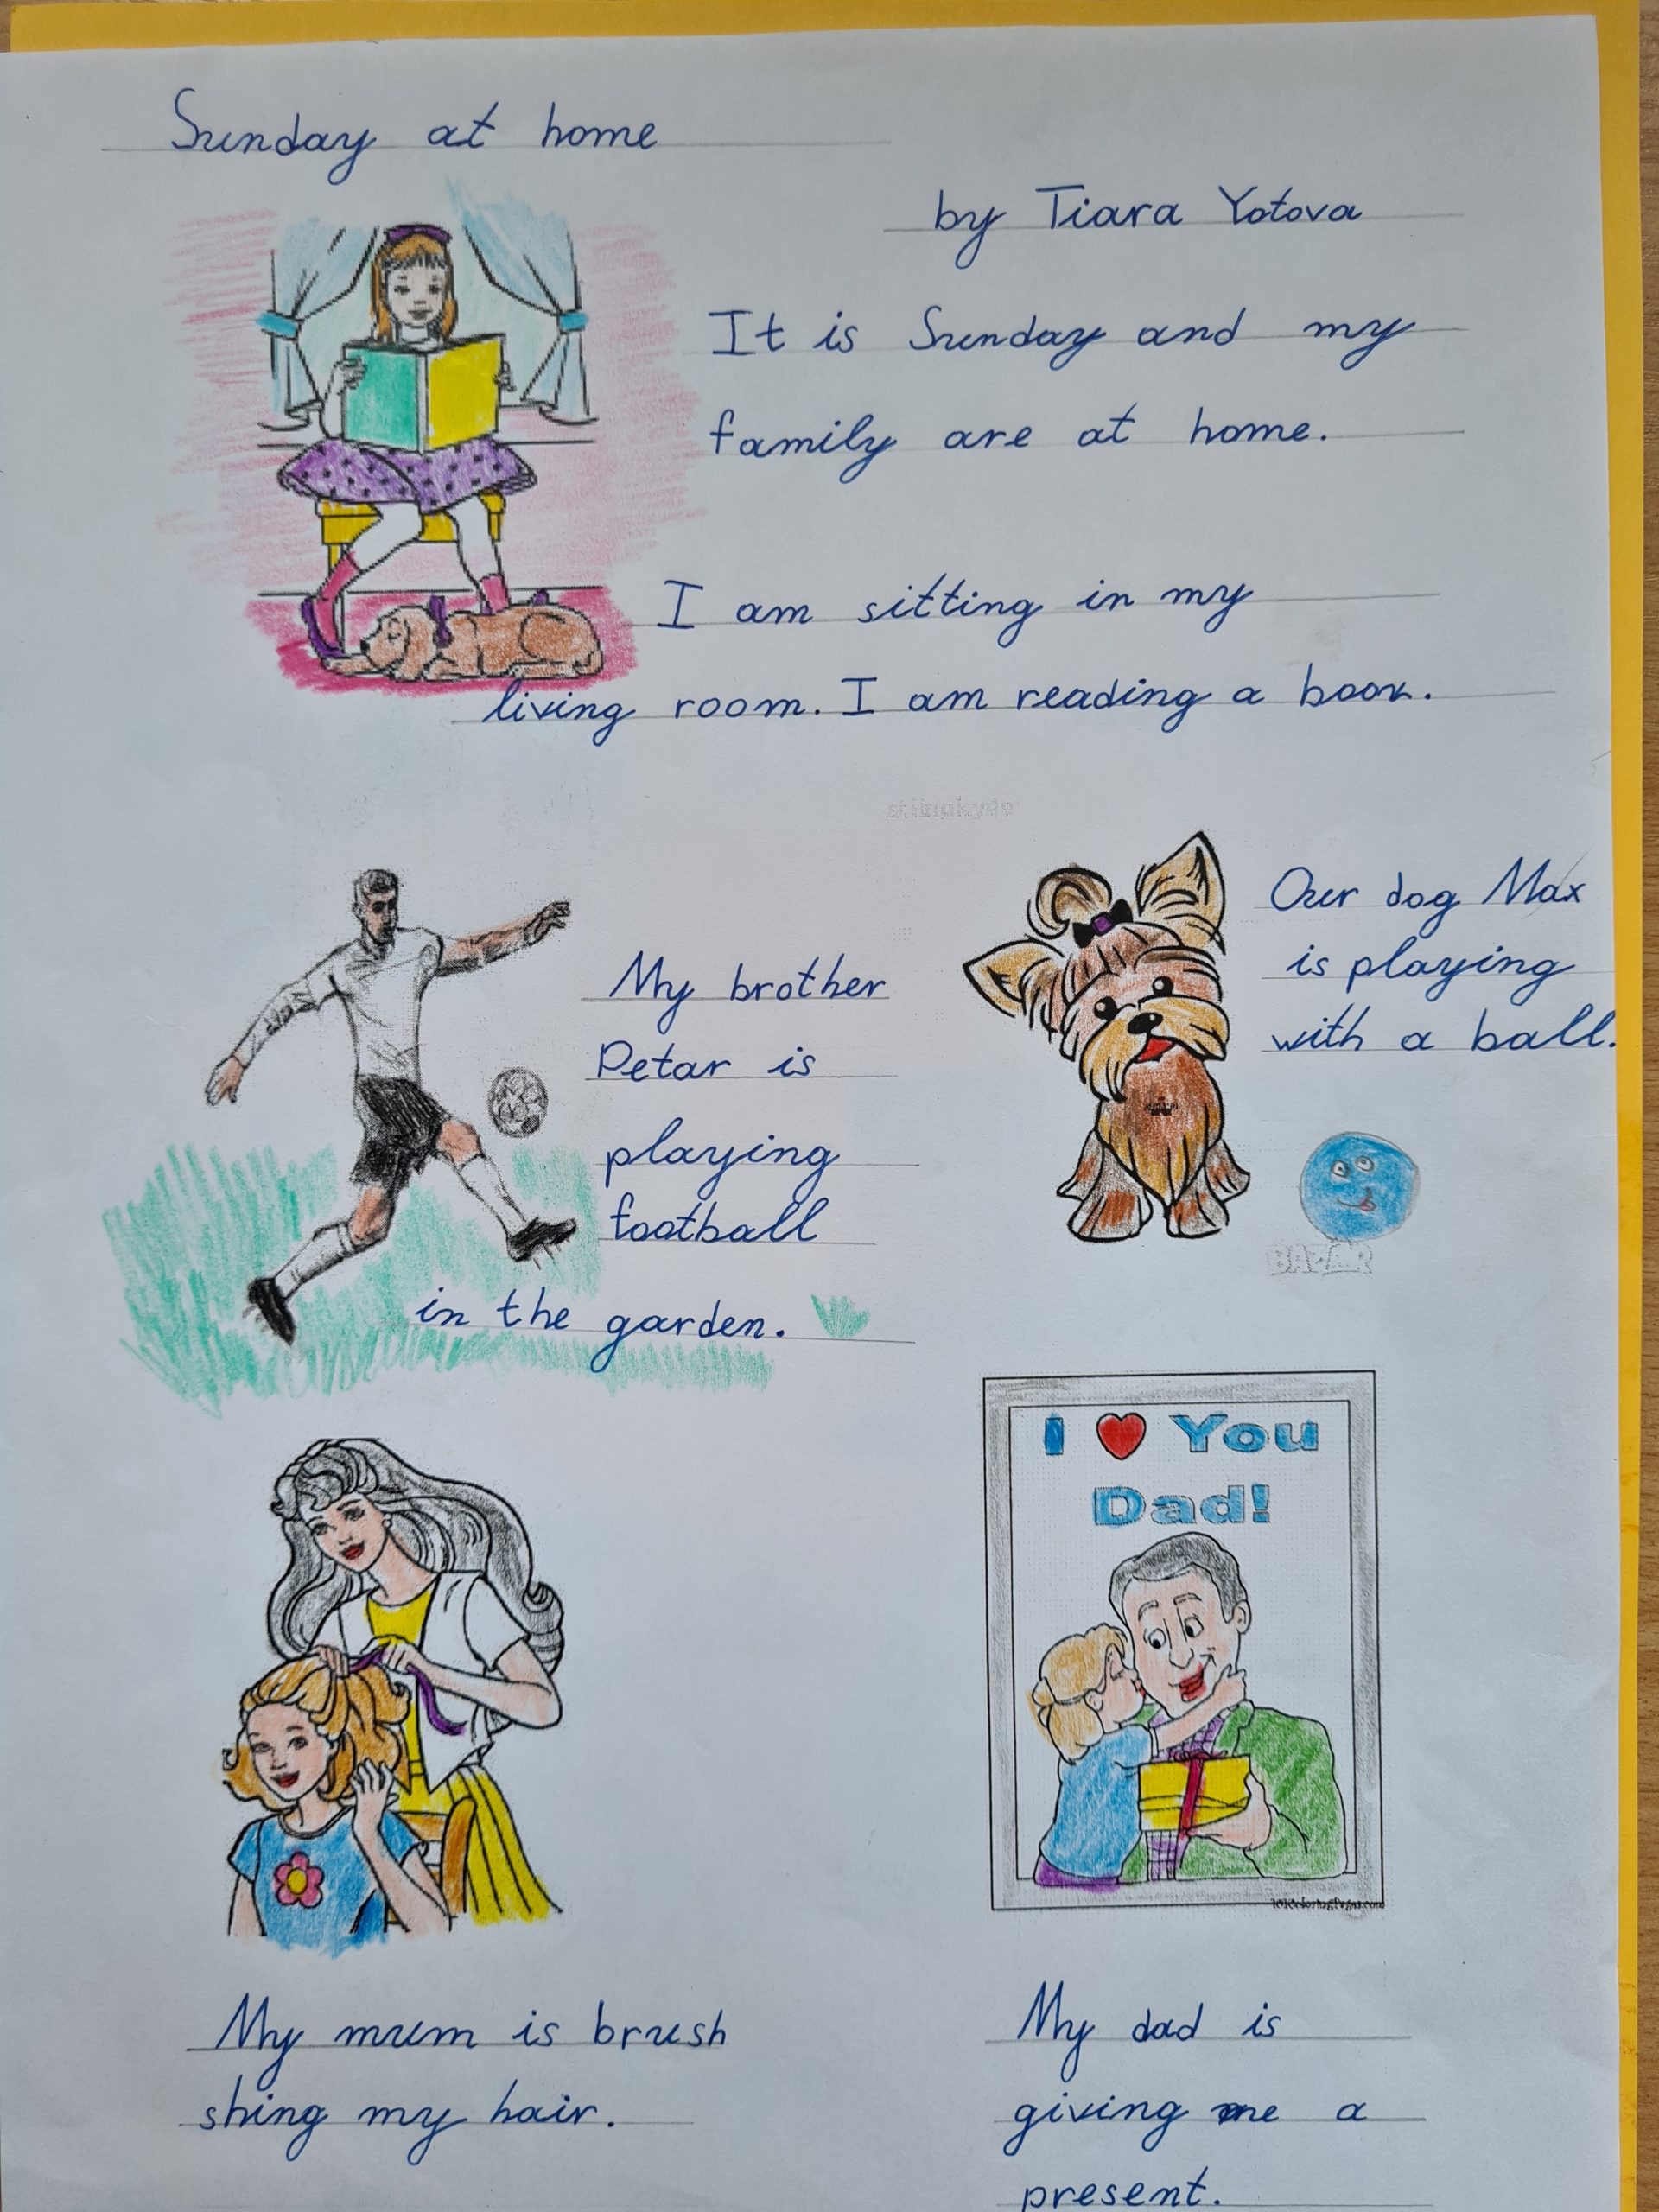 Sunday at home
by Tiara Yotova
It is Sunday and my
family are at home.
I am sitting in my
living room. I am reading a book.
stihukyde
My brother
Petar is
playing
football
in the garden.
Our dog Max
is playing
with a ball.
BAZAR
I ❤ You
Dad!
101ColoringPages.com
My mum is brush
shing my hair.
My dad is
giving me a
present.